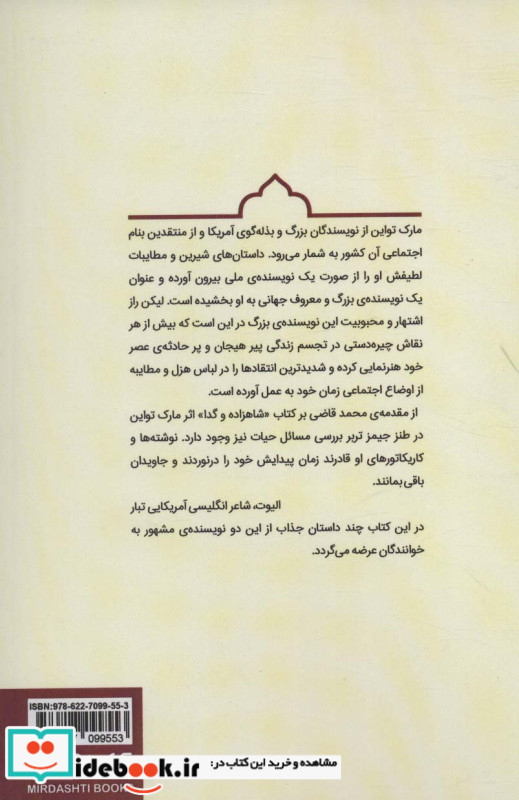 مارک تواین از نویسندگان بزرگ و بذله‌گوی آمریکا و از منتقدین بنام
اجتماعی آن کشور به شمار می‌رود. داستان‌های شیرین و مطایبات
لطیفش او را از صورت یک نویسنده‌ی ملی بیرون آورده و عنوان
یک نویسنده‌ی بزرگ و معروف جهانی به او بخشیده است. لیکن راز
اشتهار و محبوبیت این نویسنده‌ی بزرگ در این است که بیش از هر
نقاش چیره‌دستی در تجسم زندگی پیر هیجان و پر حادثه‌ی عصر
خود هنرنمایی کرده و شدیدترین انتقادها را در لباس هزل و مطایبه
از اوضاع اجتماعی زمان خود به عمل آورده است.
از مقدمه‌ی محمد قاضی بر کتاب «شاهزاده و گدا» اثر مارک تواین
در طنز جیمز تربر بررسی مسائل حیات نیز وجود دارد. نوشته‌ها و
کاریکاتورهای او قادرند زمان پیدایش خود را درنوردند و جاویدان
باقی بمانند.
الیوت، شاعر انگلیسی آمریکایی تبار
در این کتاب چند داستان جذاب از این دو نویسنده‌ی مشهور به
خوانندگان عرضه می‌گردد.
ISBN:978-622-7099-55-3
099553
مشاهده و خرید این کتاب در:
idebook.ir
MIRDASHTI BOOK